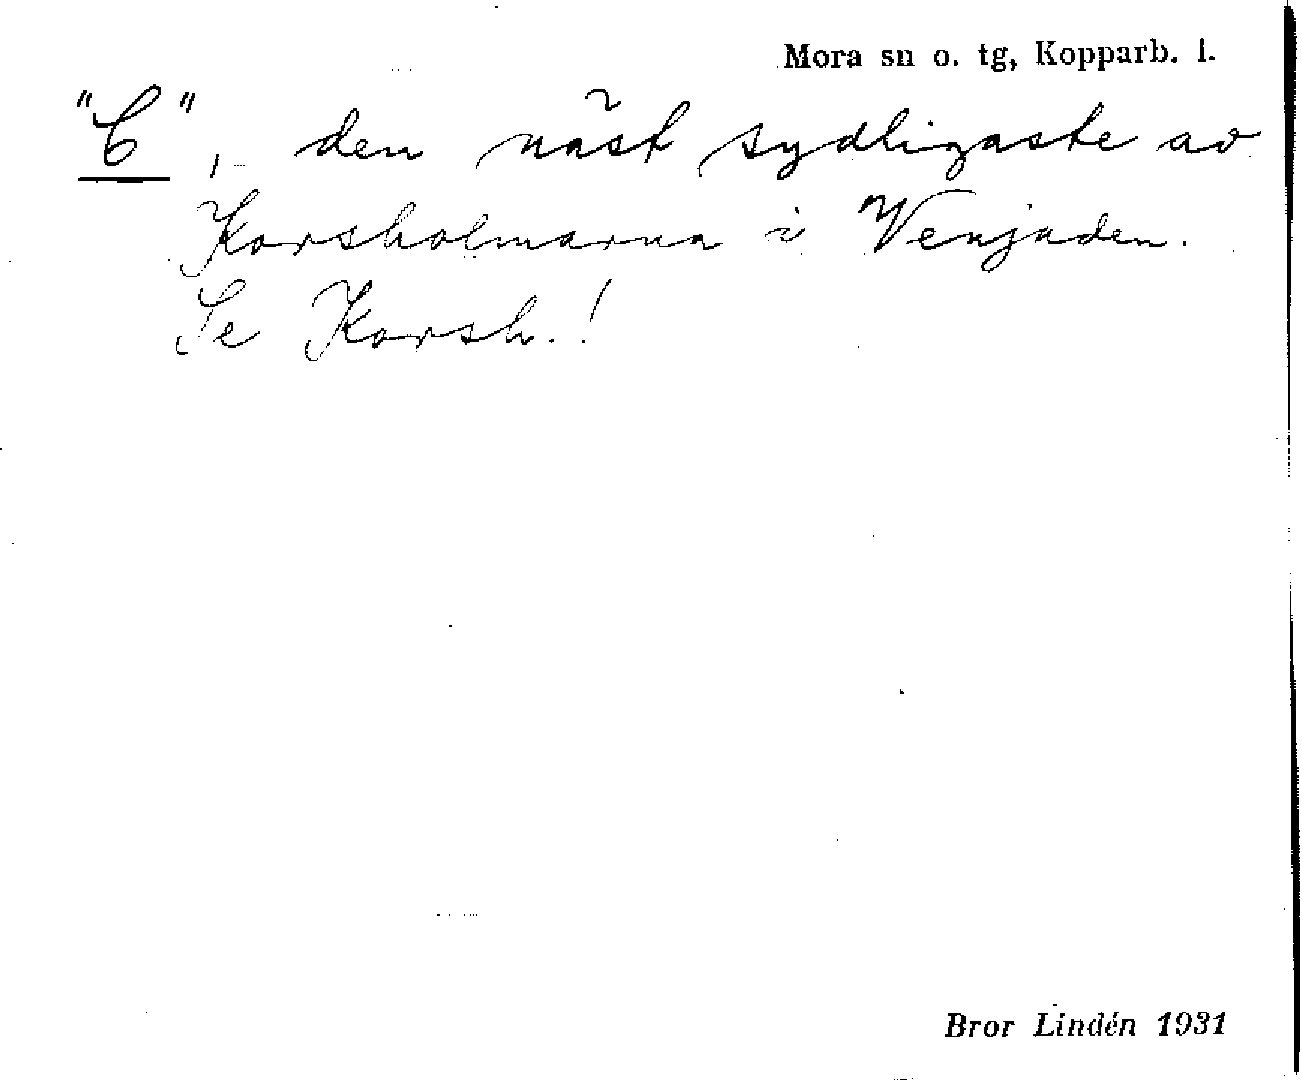 Mora sn o. tg, Kopparb. l.
"C", den näst sydligaste av
Korsholmarna i Venjaden.
Se Korsh.!
Bror Lindén 1931